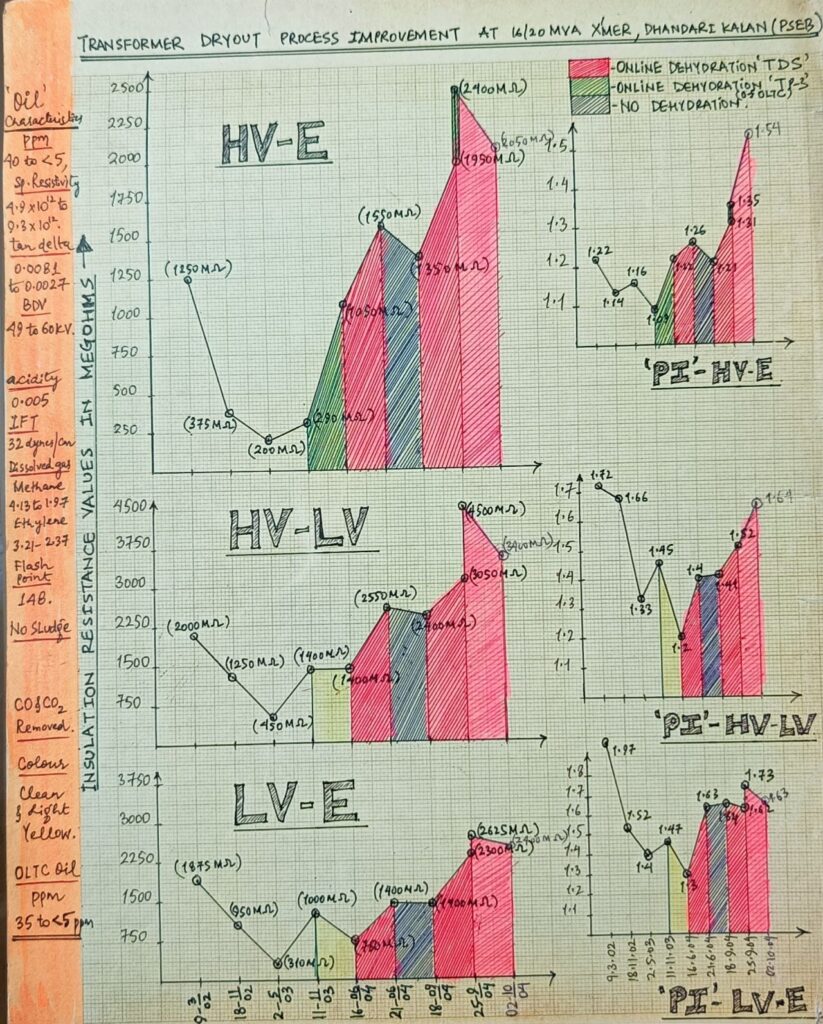 TRANSFORMER DRYOUT PROCESS IMPROVEMENT AT 16/20 MVA X'MER, DHANDARI KALAN (PSEB)
-ONLINE DEHYDRATION 'TDS'
-ONLINE DEHYDRATION
-NO DEHYDRATION.
'Oil'
Characteristics
ppm
40 to <5,
Sp. Resistivity
4.9x10¹² to
9.3x10¹².
tan delta
0.0081
to 0.0027
BDV
49 to 60KV.
acidity
0.005
IFT
32 dynes/cm
Dissolved gas
Methane
4.13 to 1.97
Ethylene
3.21-2.37
Flash
point
148.
No Sludge
CO & CO₂
Removed.
Colour
Clean
& Light
Yellow.
OLTC Oil
PPM
35 to <5 ppm
INSULATION RESISTANCE VALUES IN MEGOHMS
HV-E
2500
2250
2000
1750
1500
1250
1000
750
500
250
(1250MΩ)
(375MΩ)
(200MΩ)
(290MΩ)
(1050MΩ)
(1550MΩ)
(1350MΩ)
(2400MΩ)
(1950MΩ)
(2050MΩ)
'PI'-HV-E
1.5
1.4
1.3
1.2
1.1
1.22
1.14
1.16
1.09
1.22
1.26
1.21
1.35
1.31
1.54
HV-LV
4500
3750
3000
2250
1500
750
(2000MΩ)
(1250MΩ)
(450MΩ)
(1400MΩ)
(1400MΩ)
(2550MΩ)
(2400MΩ)
(4500MΩ)
(3050MΩ)
'PI'-HV-LV
1.7
1.6
1.5
1.4
1.3
1.2
1.1
1.72
1.66
1.33
1.45
1.2
1.4
1.41
1.52
1.64
LV-E
3750
3000
2250
1500
750
(1875MΩ)
(950MΩ)
(310MΩ)
(1000MΩ)
(750MΩ)
(1400MΩ)
(1400MΩ)
(2625MΩ)
(2300MΩ)
9-3/02
18-11/02
2-5/03
11-11/03
16-06/04
21-06/04
18-09/04
25-9/04
02-10/04
'PI'-LV-E
1.8
1.7
1.6
1.5
1.4
1.3
1.2
1.1
1.97
1.52
1.4
1.47
1.3
1.63
1.64
1.73
1.62
1.63
9.3.02
18.11.02
2.5.03
11.11.03
16.6.04
21.6.04
18.9.04
25.9.04
02.10.04